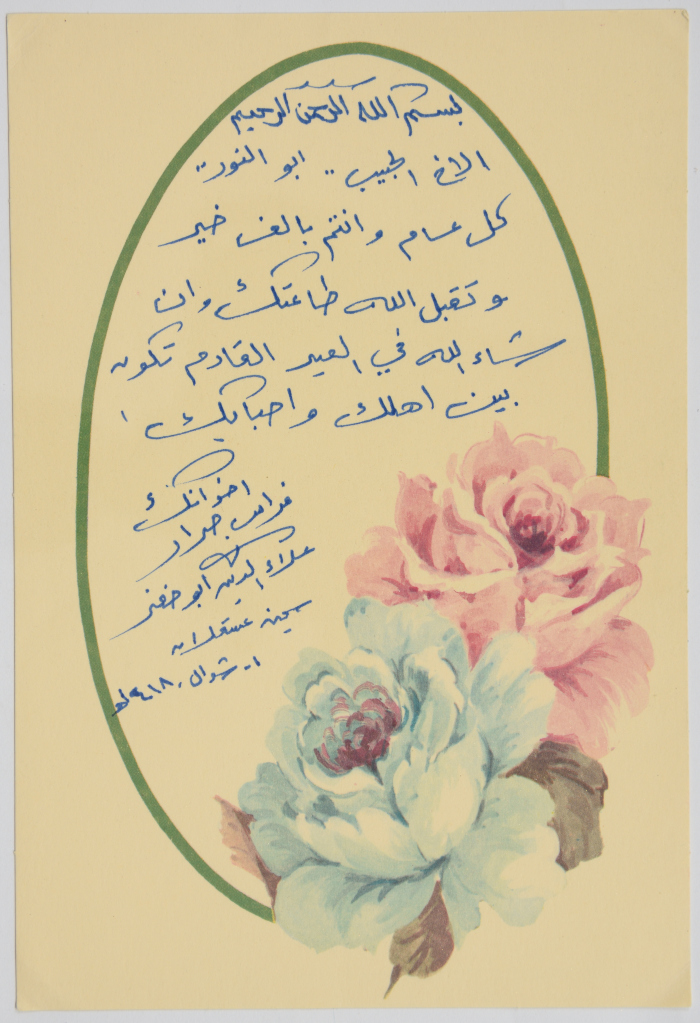 بسم الله الرحمن الرحيم
الاخ الحبيب .. ابو النور ..
كل عام وانتم بالف خير
وتقبل الله طاعتك وان
شاء الله في العيد القادم تكون
بين اهلك واحبابك
اخوانك
فراس جرار
علاء الدين ابو خضر
سجن عسقلان
١- شوال - ١٤١٨هـ